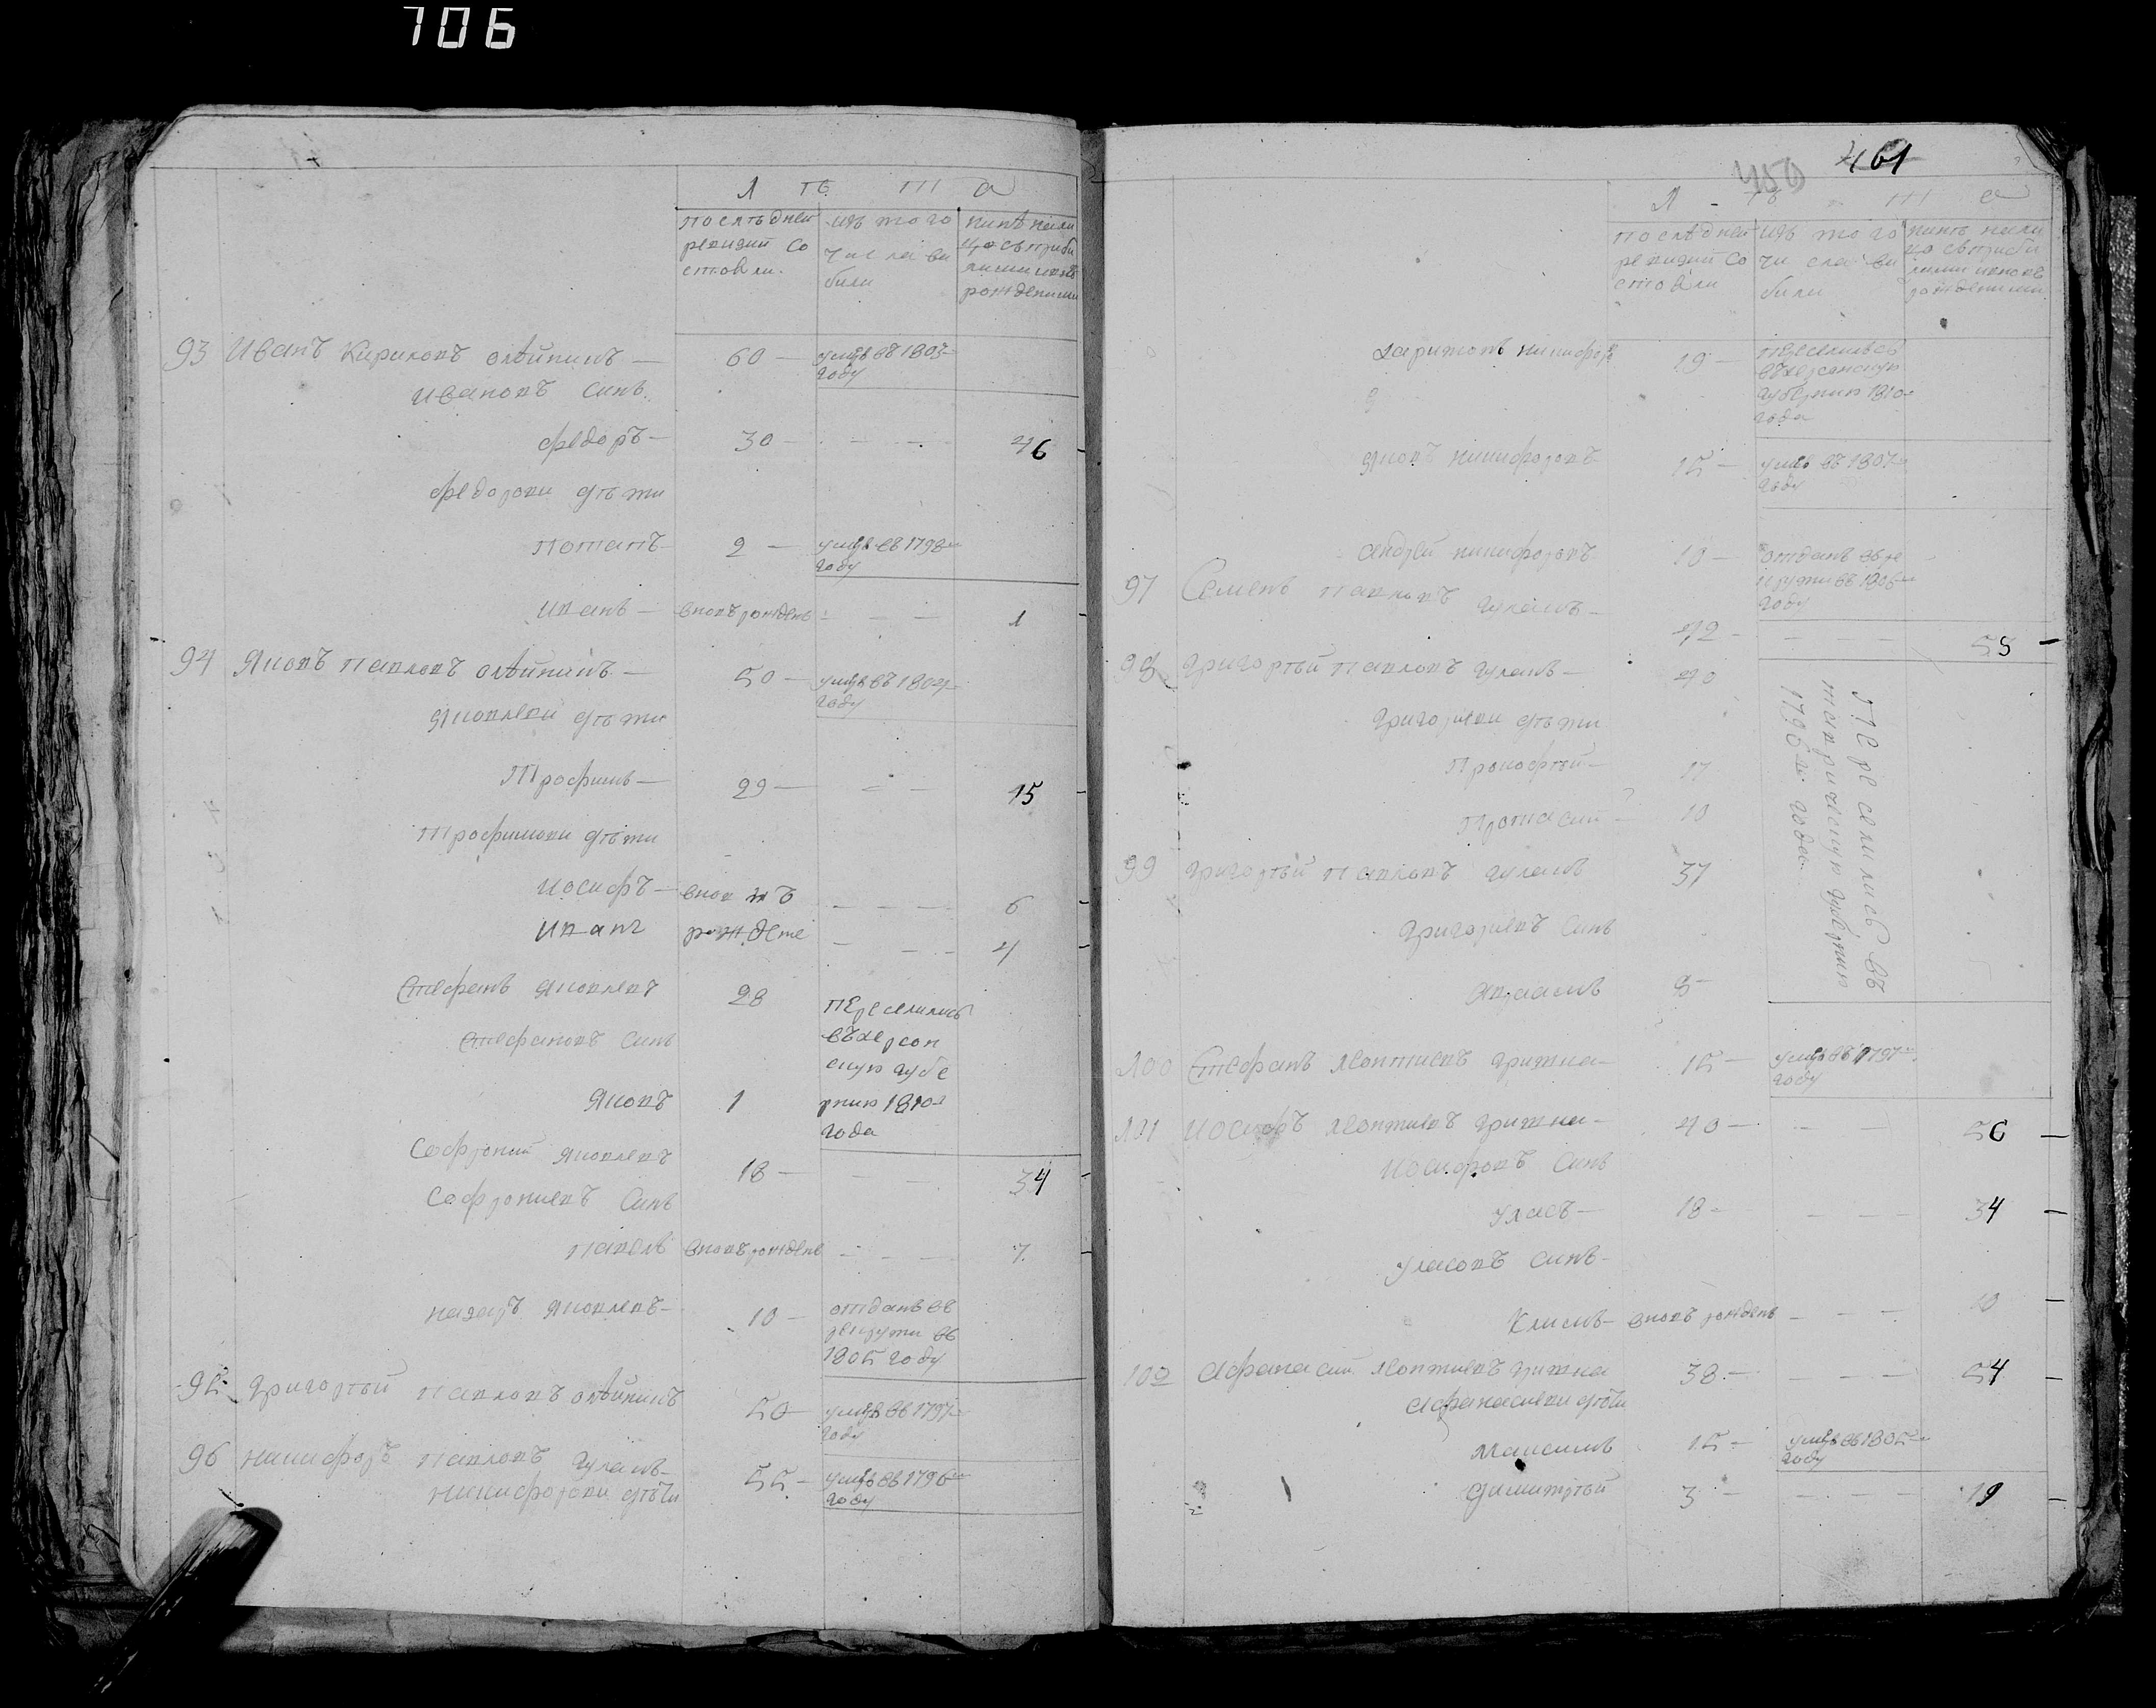 706
Л ѣ т а
Последней ревизии состояли.
изъ того числа выбыли
ныне налицо съ прибылыми и вновь рожденными
93 Иванъ Кириловъ олейникъ — 60 — умре въ 1803м году
Ивановъ сынъ
федоръ — 30 — — — 46
федоровы дѣти
Потапъ 2 — умре въ 1798м году
Иванъ — вновь рожденъ — — — 1
94 Яковъ Павловъ олейникъ — 50 — умре въ 1804м году
Яковлевы дѣти
Трофимъ — 29 — — — 15
Трофимовы дѣти
Иосифъ — вновь — — — 6
Иванъ рожденые — — — 4
Стефанъ Яковлевъ 28 переселились въ херсонскую губернию 1810м года
Стефановъ сынъ
Яковъ 1
Софроний Яковлевъ 18 — — — 34
Софрониевъ сынъ
Павелъ вновь рожденъ — — — 7
Назаръ Яковлевъ — 10 — отданъ въ рекруты въ 1805 году
95 Григорий Павловъ олейникъ 50 умре въ 1797м году
96 Никифоръ Павловъ гулакъ — 55 — умре въ 1796м году
Никифоровы дѣти
461
450
Л ѣ т а
Последней ревизии состояли
изъ того числа выбыли
ныне налицо съ прибылыми и вновь рожденными
Харитонъ Никифоровъ 19 — переселился въ херсонскую губернию 1810м года
Яковъ Никифоровъ 15 — умре въ 1807м году
Андрей Никифоровъ 10 — отданъ въ рекруты въ 1806м году
97 Семенъ Павловъ гулакъ — 42 — — — — 58
98 Григорий Павловъ гулакъ — 40
Григориевы дѣти
Прокофий — 17
Протасий — 10
Переселились въ таврическую губернию 1796м года
99 Григорий Павловъ гулакъ 37
Григориевъ сынъ
Авраамъ 8 —
100 Стефанъ Леонтиевъ грижка — 15 — умре въ 1797м году
101 Иосифъ Леонтиевъ грижка — 40 — — — 56
Иосифовъ сынъ
Уласъ — 18 — — — — 34
Уласовъ сынъ —
Климъ — вновь рожденъ — — — 10
102 Афанасий Леонтиевъ грижка 38 — — — — 54
Афанасиевы дѣти
Максимъ 15 — умре въ 1805м году
Димитрий 3 — — — — 19